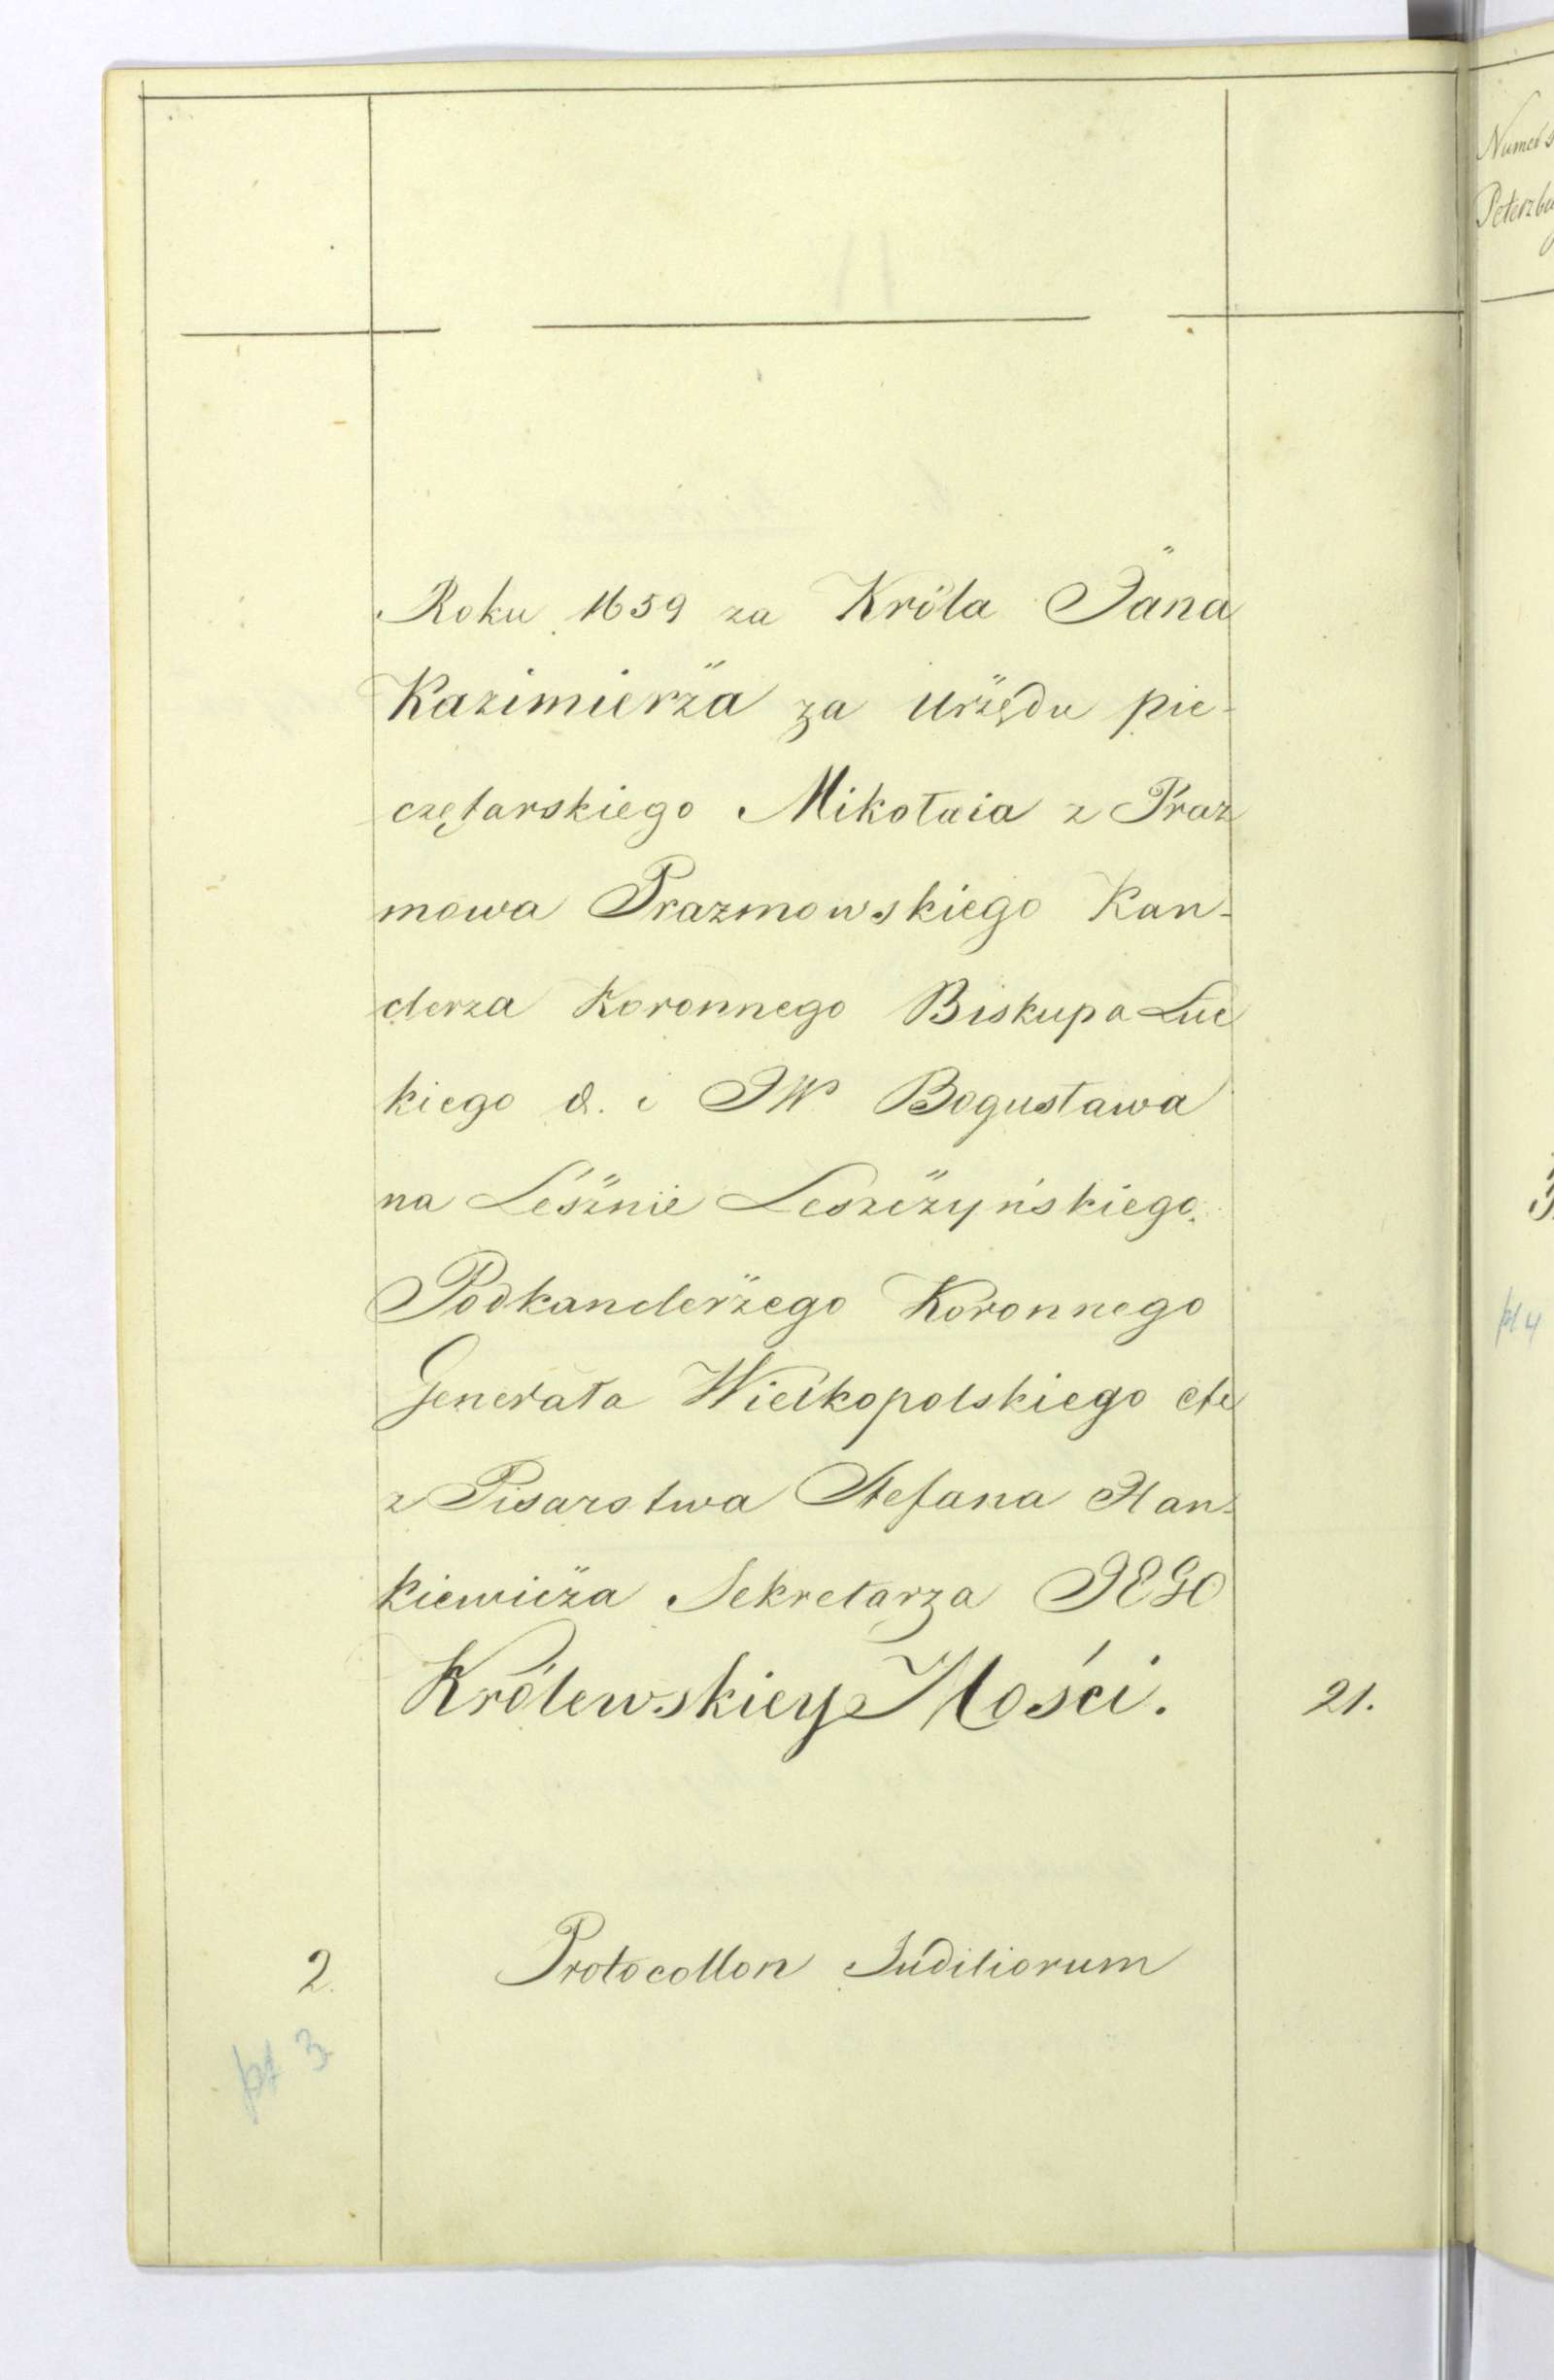 Roku 1659 za Króla Jana
Kazimierza za Urzędu pie-
czętarskiego Mikołaia z Praz
mowa Prazmowskiego Kan-
clerza Koronnego Biskupa Łuc
kiego &. i JW Bogusława
na Lesznie Leszczyńskiego
Podkanclerzego Koronnego
Generała Wielkopolskiego etc
z Pisarstwa Stefana Han-
kiewicza Sekretarza JEGO
Królewskiey Mości. 21.
2. Protocollon Juditiorum
pt 3
Peterzbu
pt 4